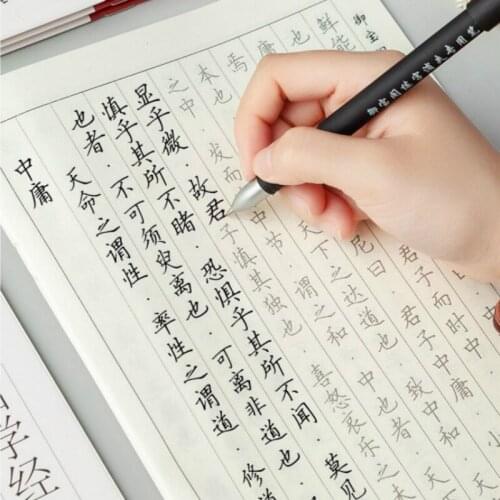 中庸
天命之谓性·率性之谓道·修
也者·不可须臾离也·可离非道也·
慎乎其所不睹·恐惧乎其所不闻·莫见
显乎微·故君子慎其独也·喜怒哀乐
之中·发而中节·谓之和·中也者·天
本也天下之达道也·致中和·天
焉尼曰·君子中庸·小
庸君子而时中
也
鲜能
御宝
学经